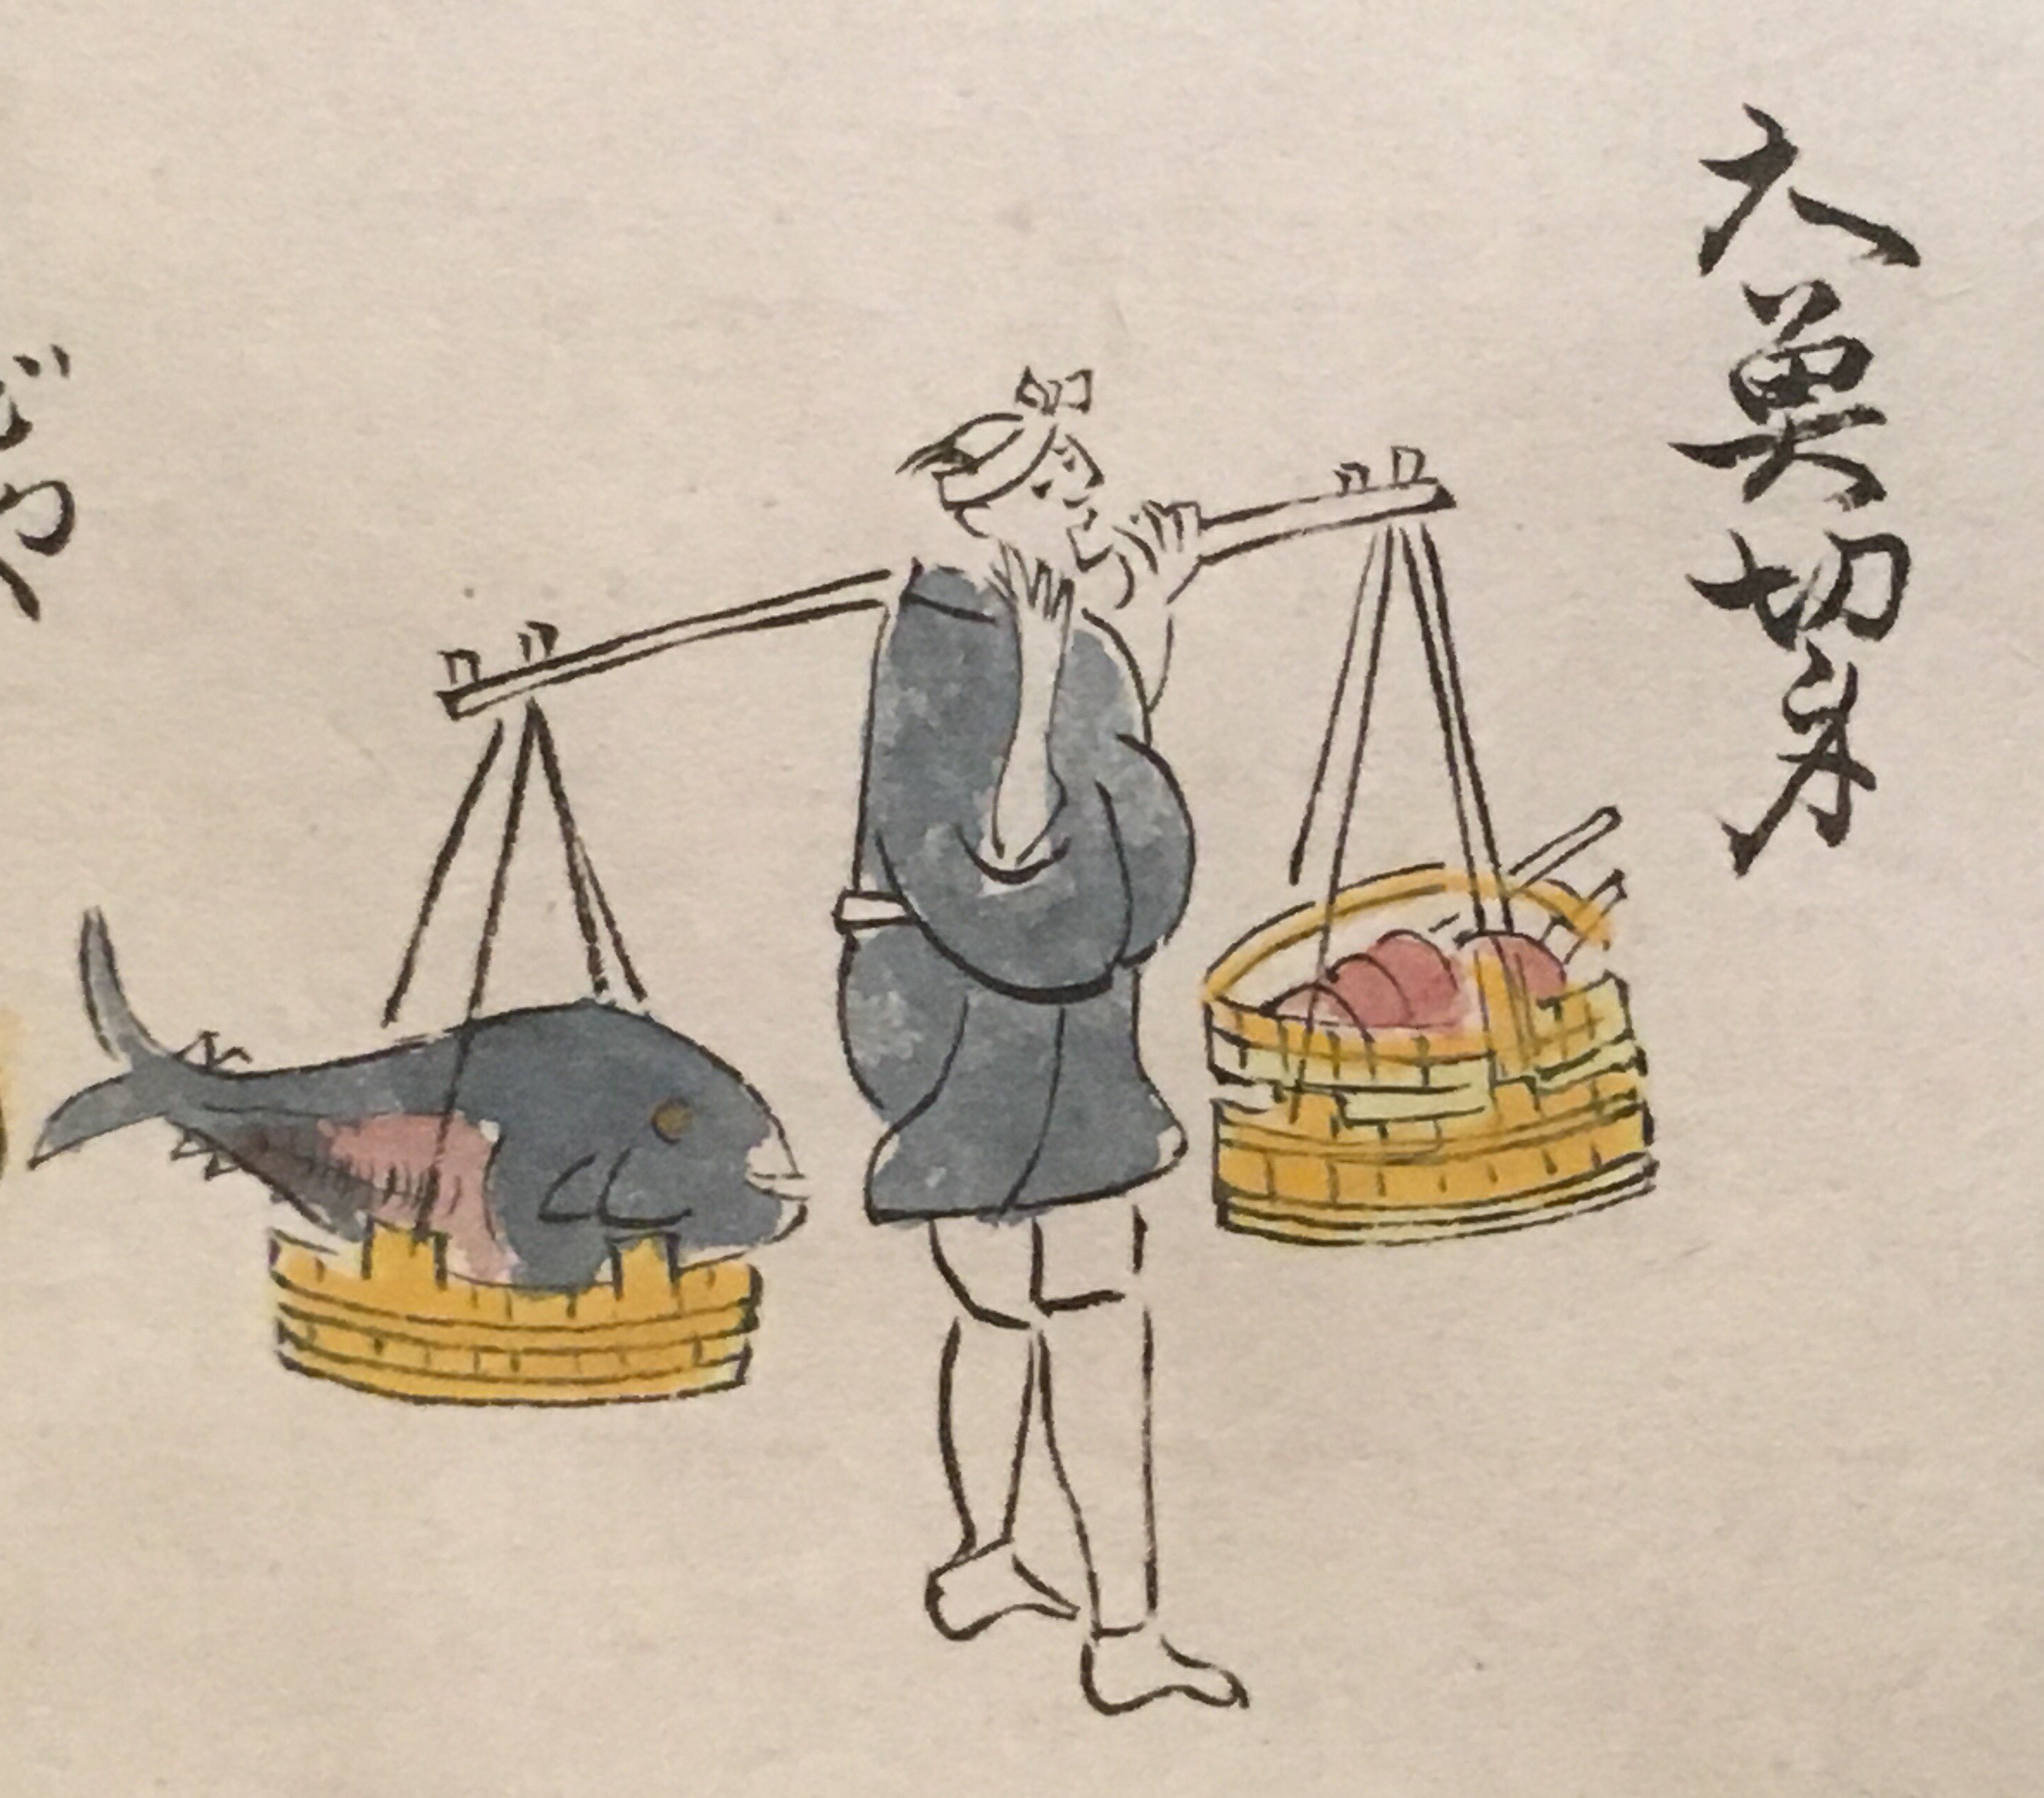 大魚切身